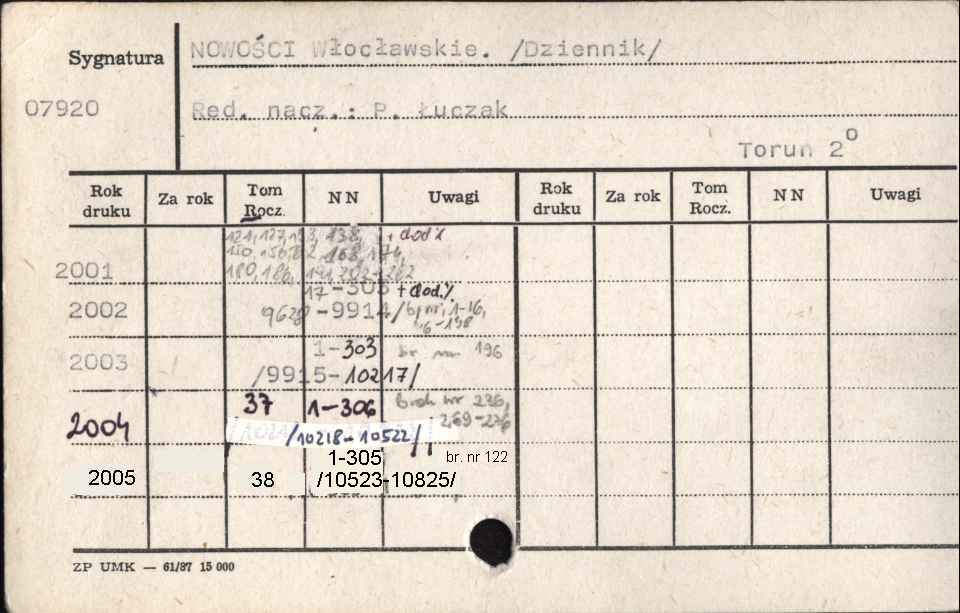 Sygnatura
NOWOŚCI Włocławskie. /Dziennik/
07920
Red. nacz.: P. Łuczak
Torun 2o
Rok druku Za rok Tom Rocz. N N Uwagi Rok druku Za rok Tom Rocz. N N Uwagi
121, 127, 133, 138, + dod %
150, 156, 162, 168, 174,
2001 180, 186, 191, 202-262
17-303 + dod. %
2002 9628-9914/ 1-16,
1-303 br. nr 196
2003
/9915-10217/
37 1-306 Brak nr 226,
2004 269-276
/10218-10522/
1-305 br. nr 122
2005 38 /10523-10825/
ZP UMK — 61/87 15 000